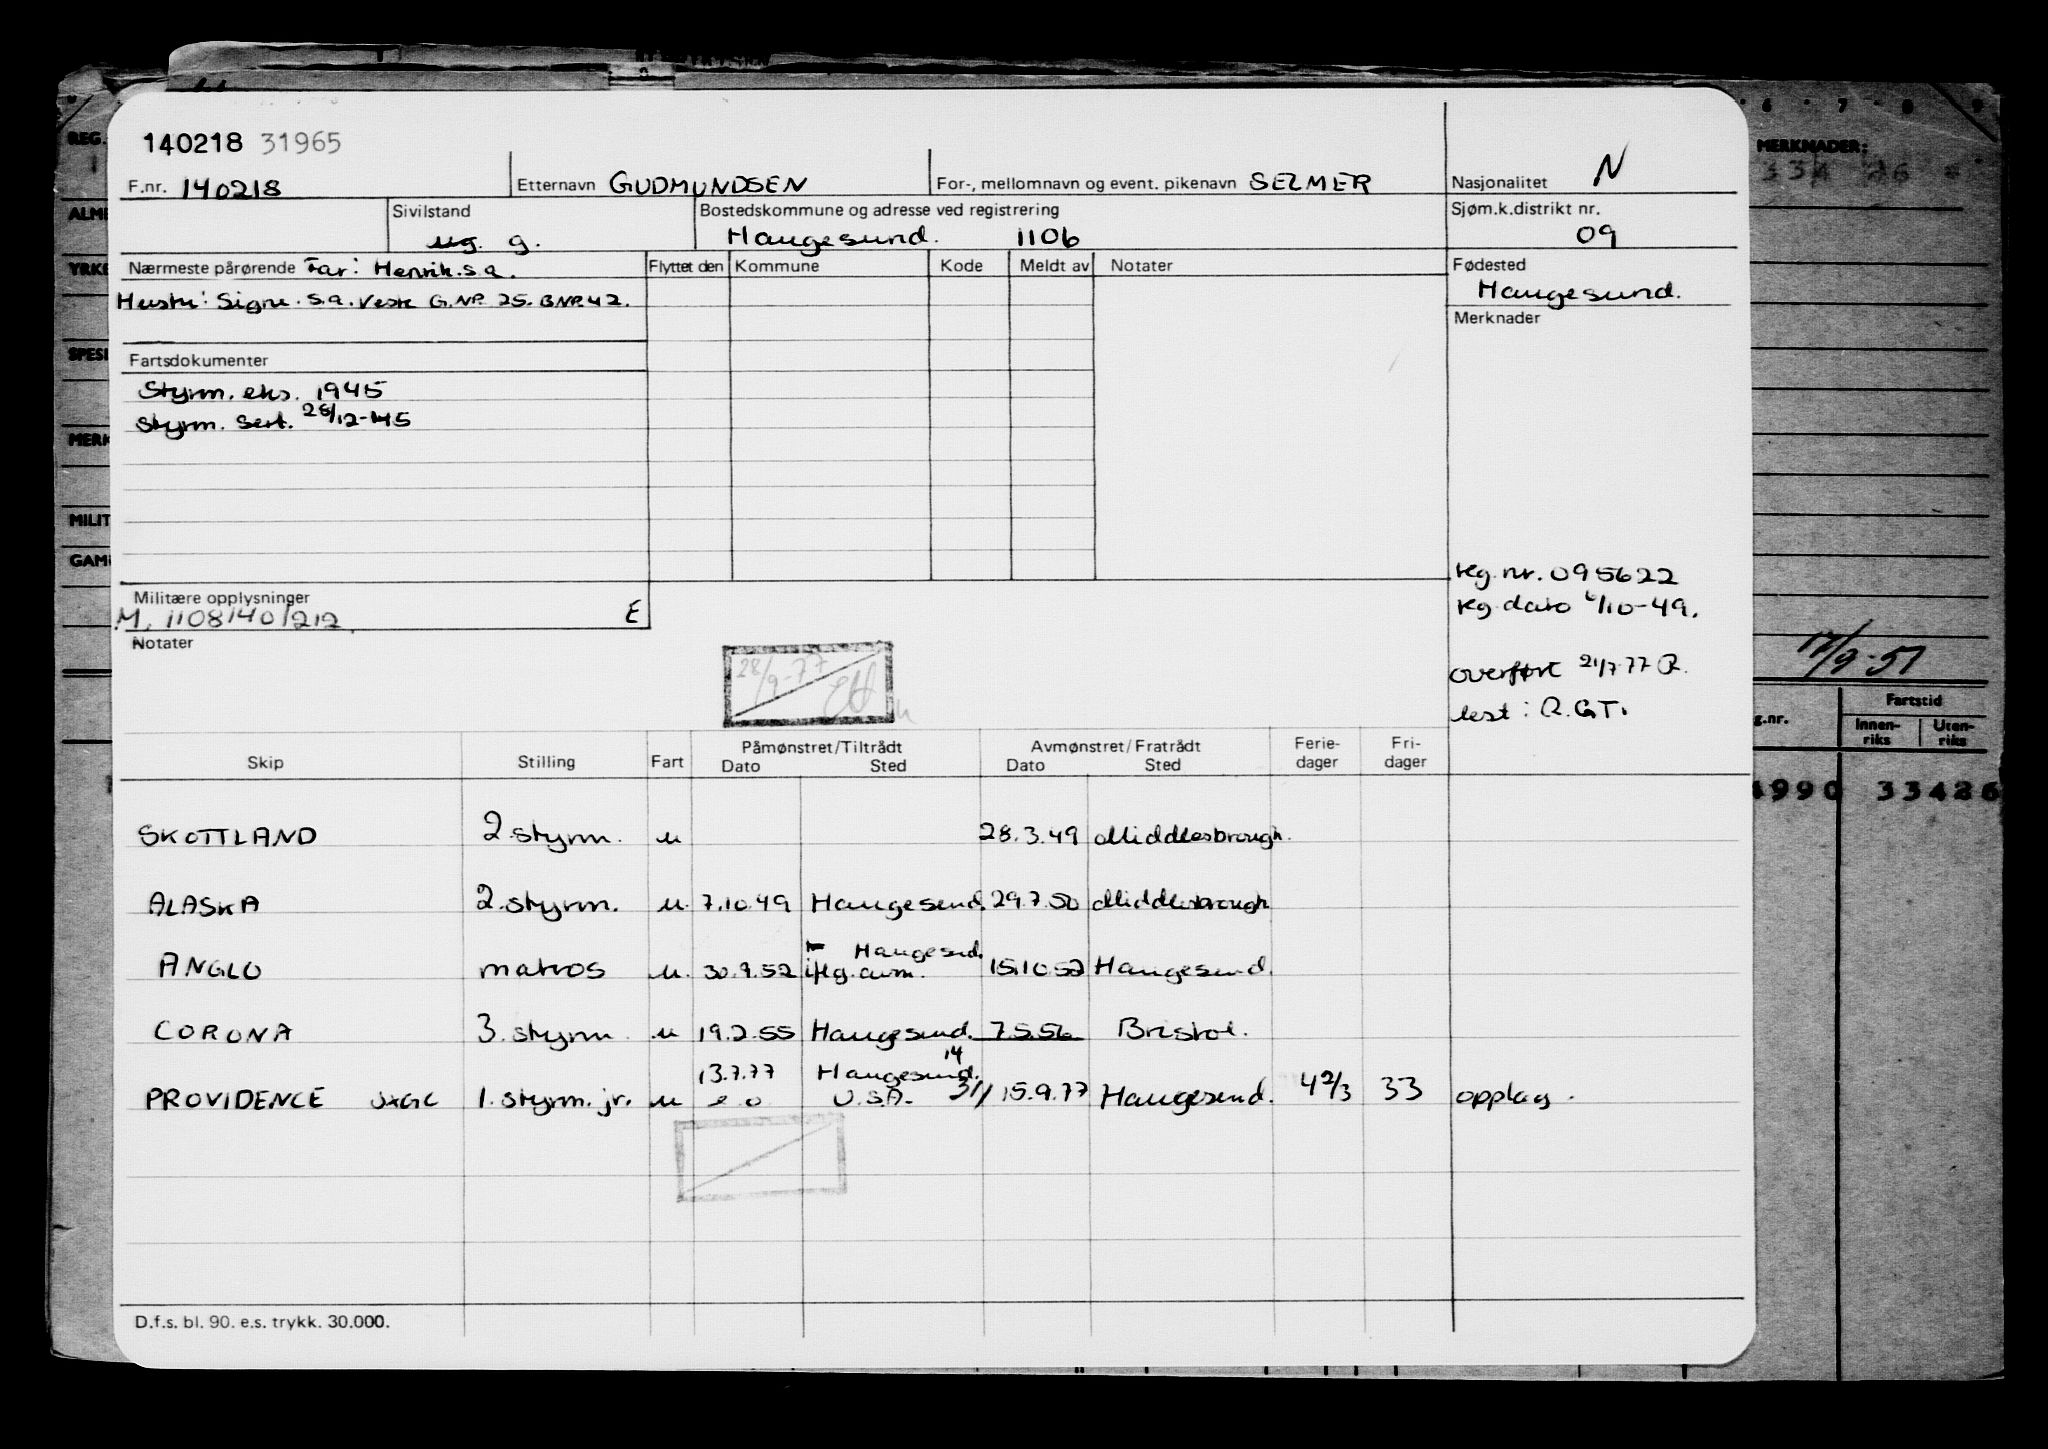 140218 31965
F.nr. 140218
Etternavn GUDMUNDSEN
For-, mellomnavn og event. pikenavn SELMER
Nasjonalitet N
Sivilstand
ug. g.
Bostedskommune og adresse ved registrering
Haugesund. 1106
Sjøm.k.distrikt nr.
09
Nærmeste pårørende Far: Henrik. s.a.
Hustru: Signe. s.a. Veste G.NR. 25. B.NR. 42.
Flyttet den Kommune Kode Meldt av Notater
Fødested
Haugesund.
Merknader
Fartsdokumenter
Styrm. eks. 1945
Styrm. sert. 28/12-45
reg. nr. 095622
reg. dato 6/10-49.
overført 21/7 77 R.
lest: R.GT.
Militære opplysninger
M. 1108/40/212 E
Notater
28/9-77
Skip Stilling Fart Påmønstret/Tiltrådt Avmønstret/Fratrådt Ferie- Fri-
Dato Sted Dato Sted dager dager
SKOTTLAND 2 styrm. u 28.3.49 Middlesbrough.
ALASKA 2. styrm. u. 7.10.49 Haugesund. 29.7.50 Middlesbrough
ANGLO matros u. 30.9.52 iflg. avm. Haugesund. 15.10.52 Haugesund.
CORONA 3. styrm u 19.2.55 Haugesund. 7.5.56 Bristol.
PROVIDENCE JXGC 1. styrm. jr. u 13.7.77 Haugesund. 14
e.o U.S.A. 31/ 15.9.77 Haugesund. 4 2/3 33 opplag.
D.f.s. bl. 90. e.s. trykk. 30.000.
REG.
ALM
YRKE
SPESI
MERK
MILIT
GAM
6 7 8 9
MERKNADER:
17/9-51
g.nr.
Fartstid
Innen-
riks
Uten-
riks
990 33426